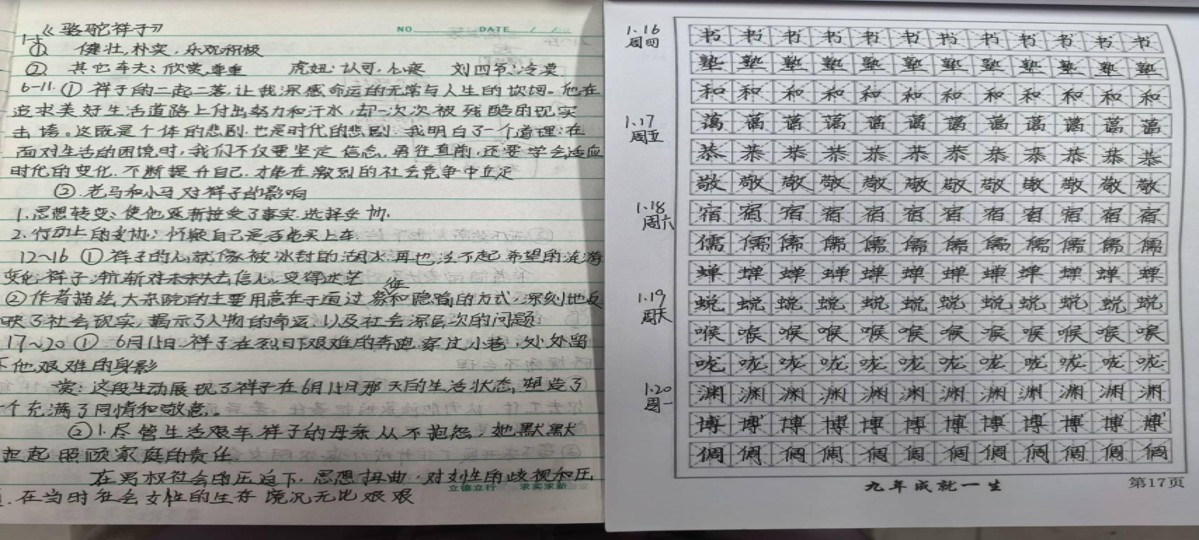 《骆驼祥子》
NO. DATE / /
1-5
① 健壮,朴实,乐观积极
② 其它车夫:欣赏,尊重 虎妞:认可,心疼 刘四爷:冷漠
6-11.①祥子的二起二落,让我深感命运的无常与人生的坎坷。他在
追求美好生活道路上付出努力和汗水,却一次次被残酷的现实
击垮。这既是个体的悲剧,也是时代的悲剧.我明白了一个道理:在
面对生活的困境时,我们不仅要坚定信念,勇往直前,还要学会适应
时代的变化,不断提升自己,才能在激烈的社会竞争中立足
②.老马和小马对祥子的影响
1.思想转变:使他逐渐接受了事实,选择妥协.
2.行动上的变协:怀疑自己是否能买上车.
12~16 ①祥子的心就像被冰封的湖水再也泛不起希望的涟漪
变化:祥子渐渐对未来失去信心,变得迷茫
②作者描述大杂院的主要用意在于通过象征和隐喻的方式,深刻地反
映了社会现实,揭示了人物的命运,以及社会深层次的问题
17~20 ① 6月15日,祥子在烈日下艰难的奔跑,穿过小巷,处处留
下他艰难的身影
赏:这段生动展现了祥子在6月15日那天的生活状态,塑造了
个充满了同情和敬意。
②1.尽管生活艰辛,祥子的母亲从不抱怨,她默默
担起照顾家庭的责任
在男权社会的压迫下,思想扭曲,对女性的歧视和压
在当时社会女性的生存境况无比艰难
立德立行 求实求新
1.16
周四
书书书书书书书书书书书
塾塾塾塾塾塾塾塾塾塾塾
和和和和和和和和和和和
1.17
周五
蔼蔼蔼蔼蔼蔼蔼蔼蔼蔼蔼
恭恭恭恭恭恭恭恭恭恭恭
敬敬敬敬敬敬敬敬敬敬敬
1.18
周六
宿宿宿宿宿宿宿宿宿宿宿
儒儒儒儒儒儒儒儒儒儒儒
蝉蝉蝉蝉蝉蝉蝉蝉蝉蝉蝉
1.19
周天
蜕蜕蜕蜕蜕蜕蜕蜕蜕蜕蜕
喉喉喉喉喉喉喉喉喉喉喉
咙咙咙咙咙咙咙咙咙咙咙
1.20
周一
渊渊渊渊渊渊渊渊渊渊渊
博博博博博博博博博博博
倜倜倜倜倜倜倜倜倜倜倜
九年成就一生 第17页